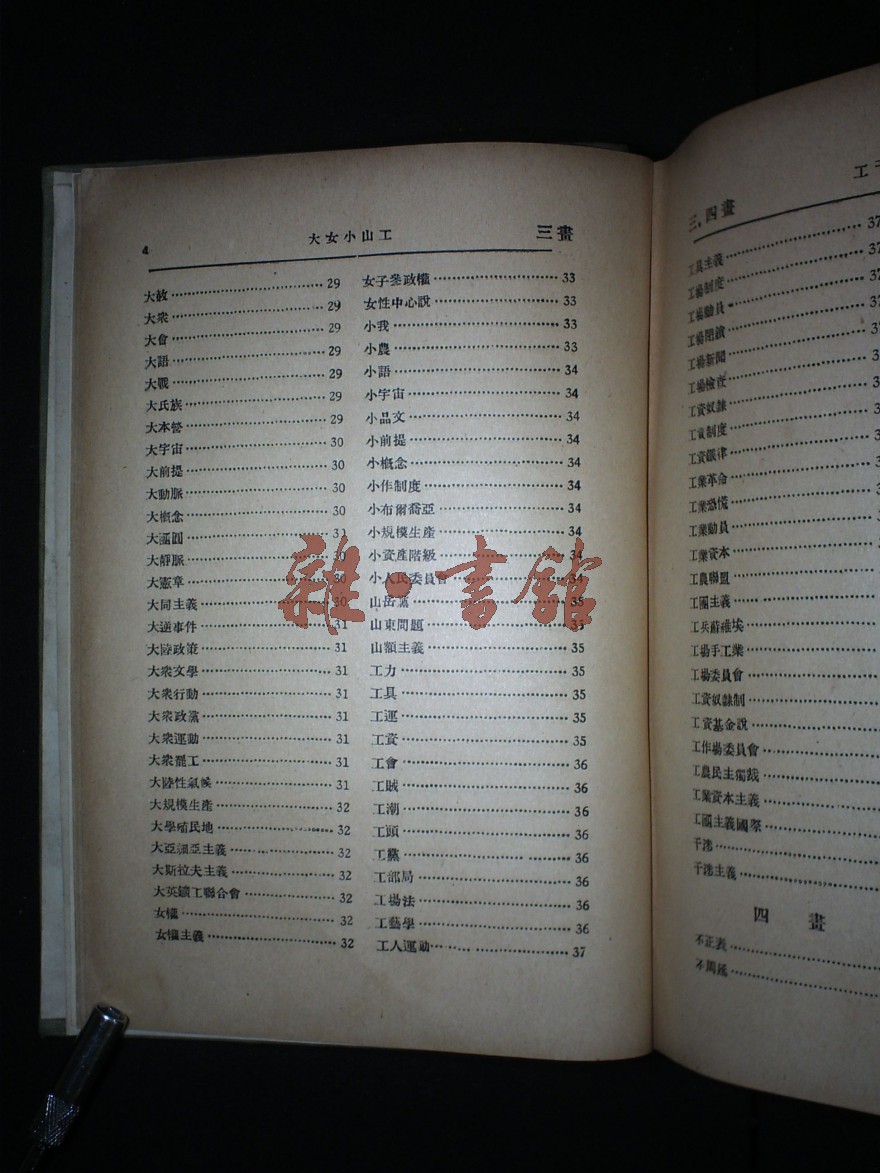 4 大女小山工 三畫
大赦 29
大衆 29
大會 29
大語 29
大戰 29
大氏族 29
大本營 29
大宇宙 30
大前提 30
大動脈 30
大概念 30
大靜脈 30
大憲章 30
大同主義 30
大逆事件 31
大陸政策 31
大衆文學 31
大衆行動 31
大衆政黨 31
大衆運動 31
大衆罷工 31
大陸性氣候 31
大規模生產 32
大學殖民地 32
大亞細亞主義 32
大斯拉夫主義 32
大英鑛工聯合會 32
女權 32
女權主義 32
女子參政權 33
女性中心說 33
小我 33
小農 33
小語 34
小宇宙 34
小品文 34
小前提 34
小概念 34
小作制度 34
小布爾喬亞 34
小規模生產 34
小資產階級 34
小人民委員會 34
山岳黨 35
山東問題 35
山額主義 35
工力 35
工具 35
工運 35
工資 35
工會 36
工賊 36
工潮 36
工頭 36
工黨 36
工部局 36
工場法 36
工藝學 36
工人運動 37
雜·書館
三,四畫 工
工具主義 37
工場制度 37
工場動員 37
工場閉鎖
工場新聞
工場檢查
工資奴隸
工資制度
工資鐵律
工業革命
工業恐慌
工業動員
工業資本
工農聯盟
工團主義
工兵蘇維埃
工場手工業
工場委員會
工資奴隸制
工資基金說
工作場委員會
工農民主獨裁
工業資本主義
工團主義國際
干涉
干涉主義
四畫
不正表
不周延